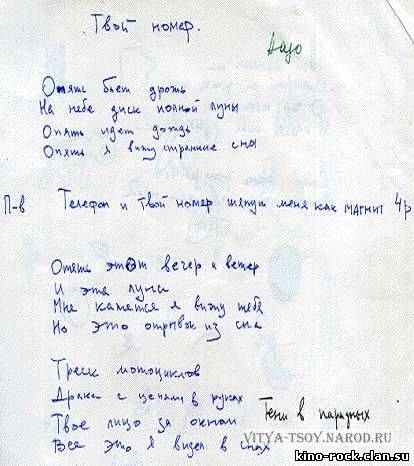 Твой номер.
Надо
Опять бьет дрожь
На небе диск полной луны
Опять идет дождь
Опять я вижу странные сны
П-в Телефон и твой номер тянут меня как МАГНИТ 4р
Опять этот вечер и ветер
И эта луна
Мне кажется я вижу тебя
Но это отрывок из сна
Треск мотоциклов
Драки с цепями в руках
Твое лицо за окном Тени в парадных
Все это я видел в снах
VITYA-TSOY.NAROD.RU
kino-rock.clan.su